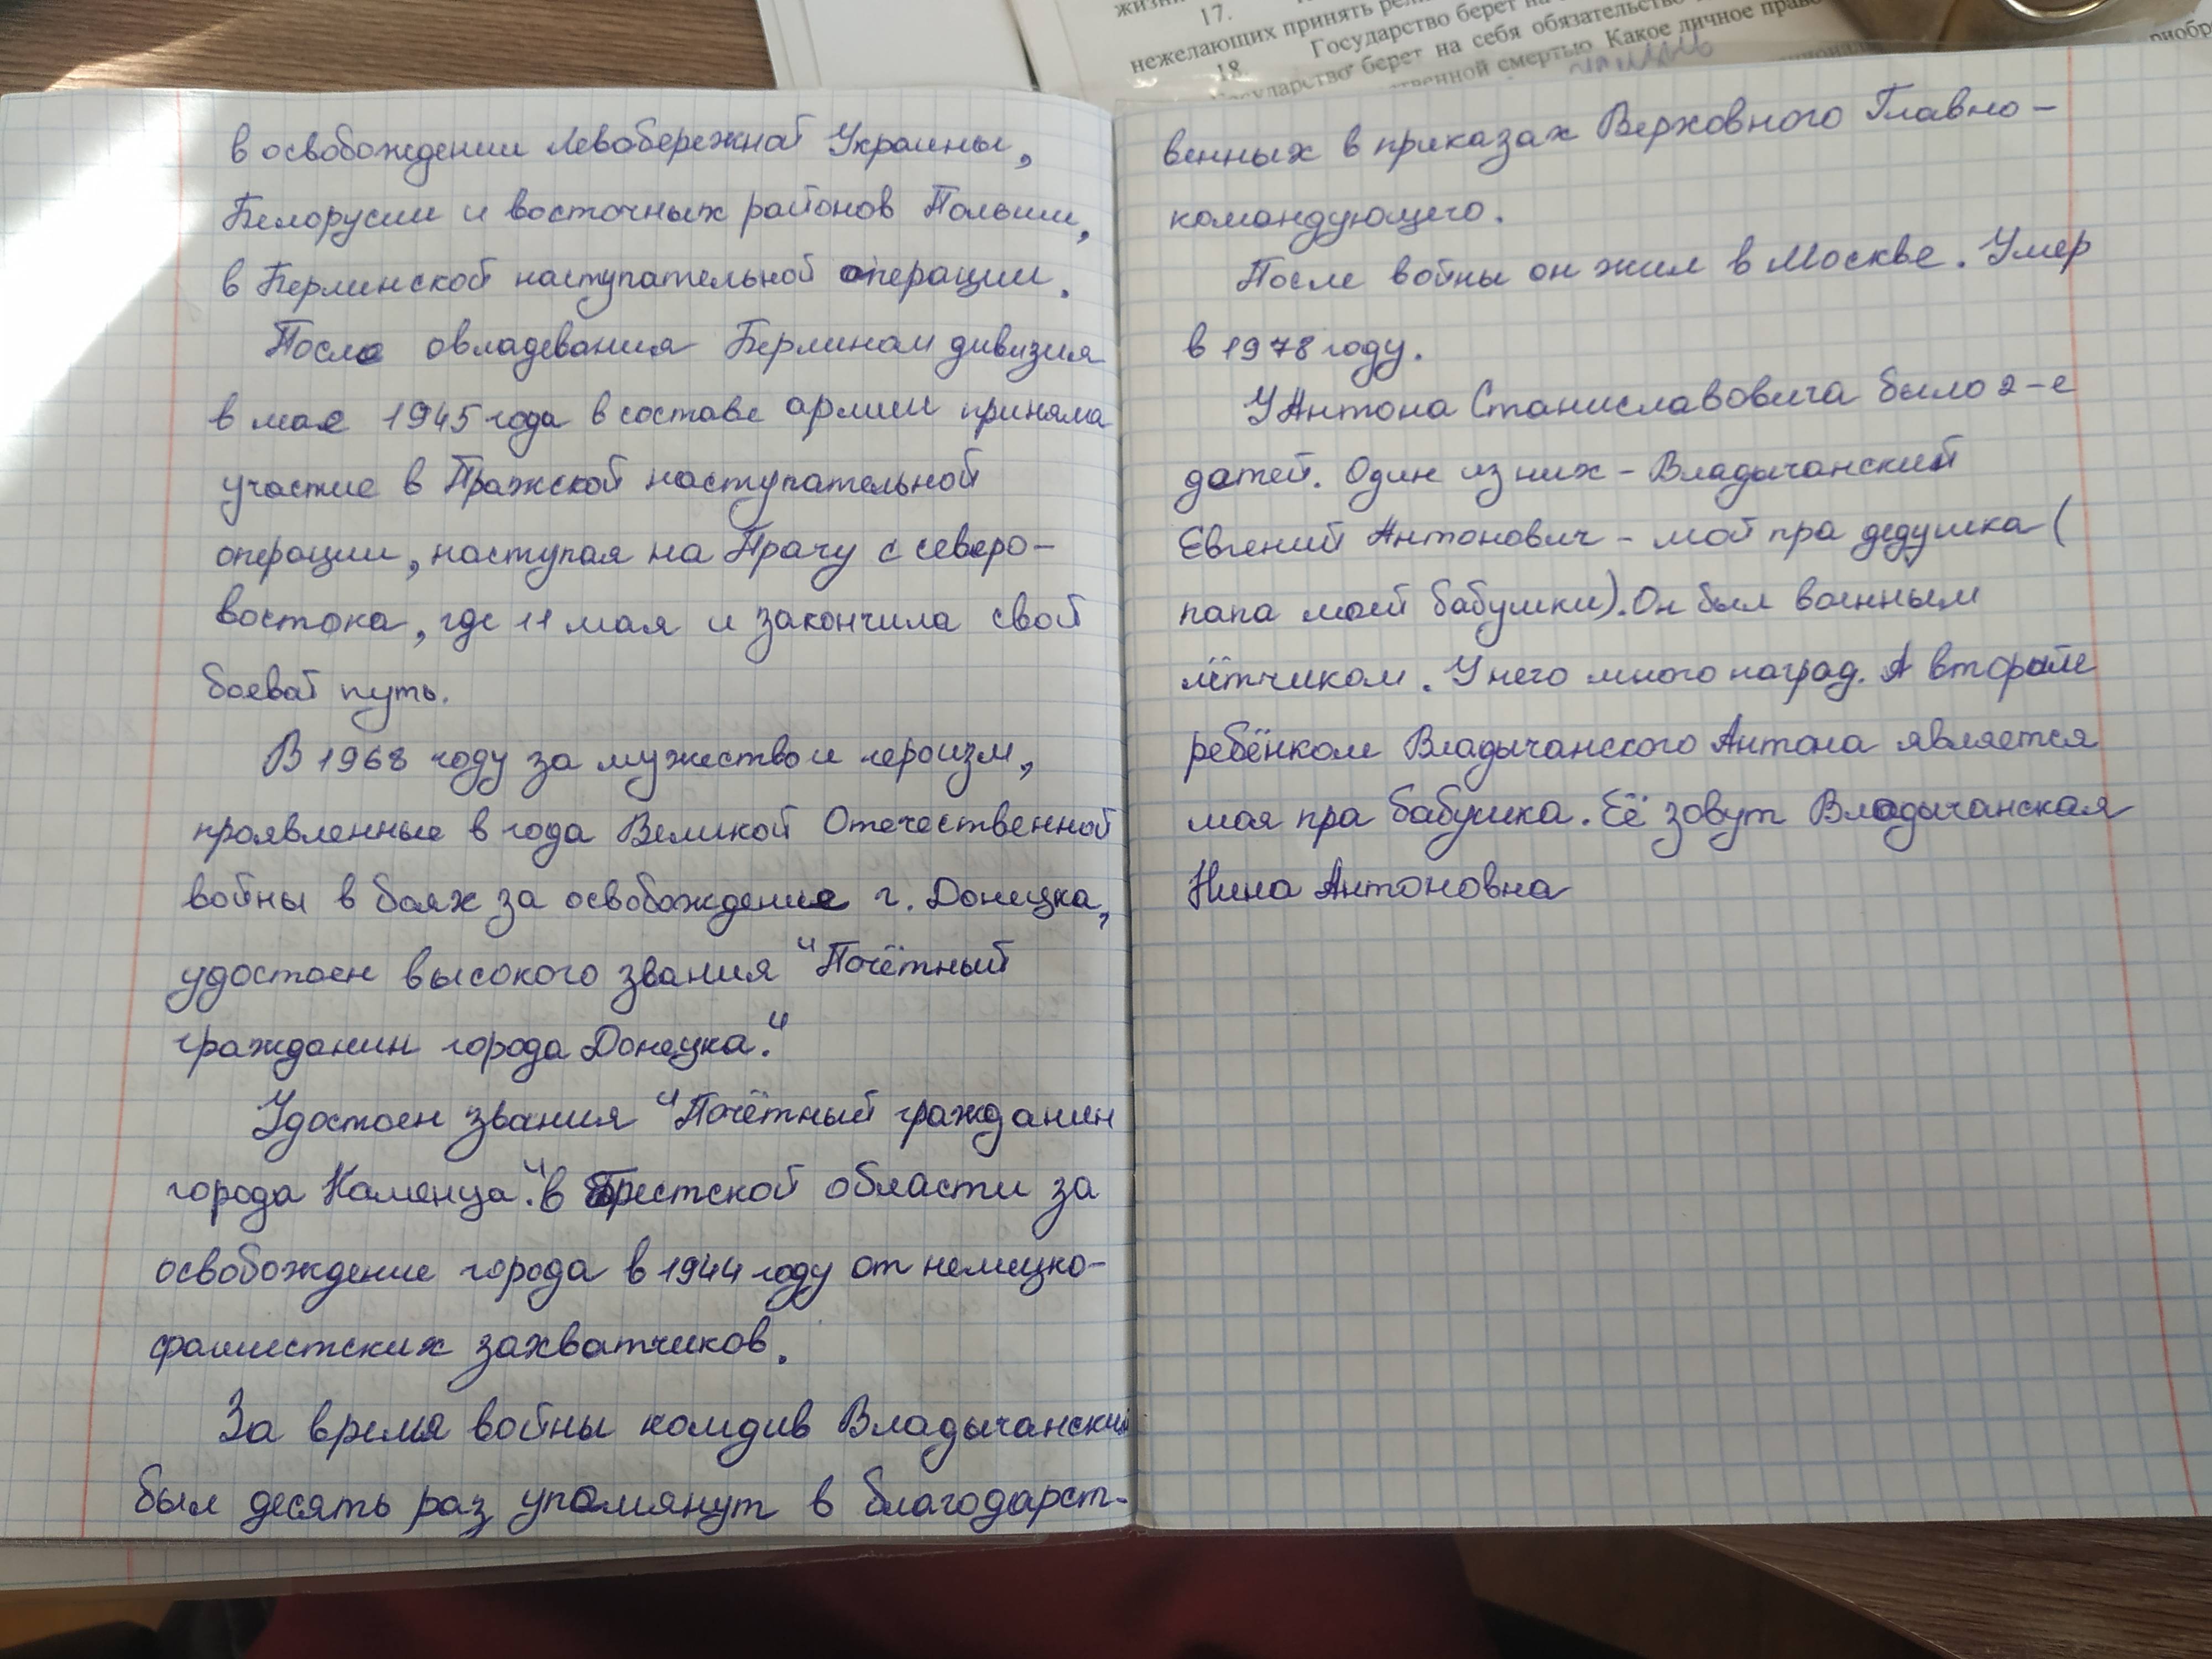 жизни
17.
нежелающих принять рели
Государство берет на
18.
на себя обязательство
Государство берет
смертью. Какое личное право
в освобождении Левобережной Украины,
Белорусии и восточных районов Польши,
в Берлинской наступательной операции.
После овладевания Берлином дивизия
в мае 1945 года в составе армии приняла
участие в Пражской наступательной
операции, наступая на Прагу с северо-
востока, где 11 мая и закончила свой
боевой путь.
В 1968 году за мужество и героизм,
проявленные в года Великой Отечественной
войны в боях за освобождение г. Донецка,
удостоен высокого звания "Почётный
гражданин города Донецка."
Удостоен звания "Почётный гражданин
города Каменца". в Брестской области за
освобождение города в 1944 году от немецко-
фашистских захватчиков.
За время войны комдив Владычанский
был десять раз упомянут в благодарст-
венных в приказах Верховного Главно-
командующего.
После войны он жил в Москве. Умер
в 1978 году.
У Антона Станиславовича было 2-е
детей. Один из них - Владычанский
Евгений Антонович - мой пра дедушка (
папа моей бабушки). Он был военным
лётчиком. У него много наград. А вторым
ребёнком Владычанского Антона является
моя пра бабушка. Её зовут Владычанская
Нина Антоновна